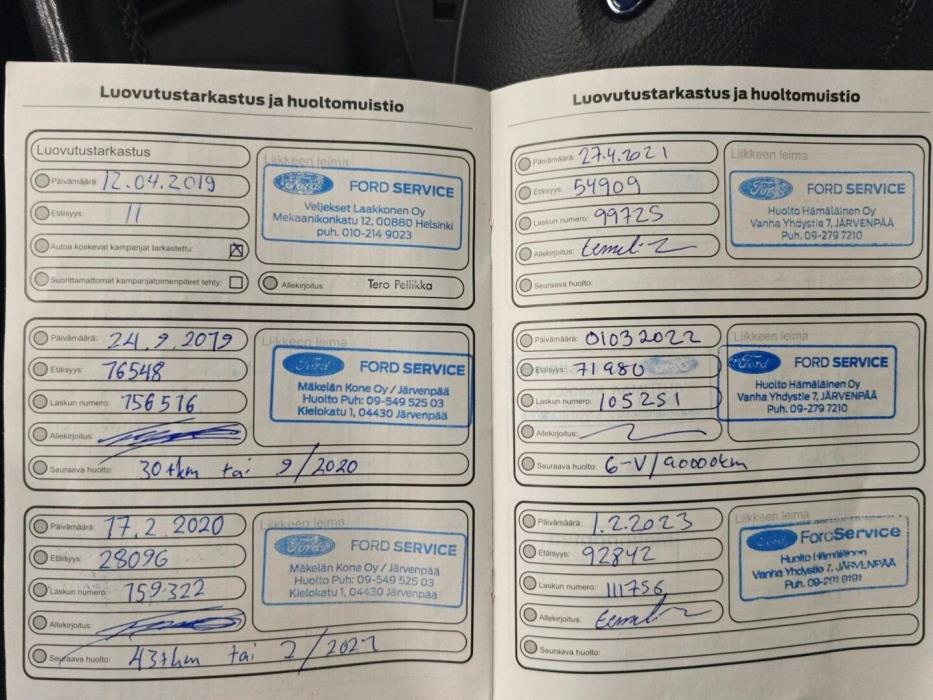 Luovutustarkastus ja huoltomuistio
Luovutustarkastus
Päivämäärä: 12.04.2019
Etäisyys: 11
Autoa koskevat kampanjat tarkastettu:
Suorittamattomat kampanjatoimenpiteet tehty:
Liikkeen leima
Ford FORD SERVICE
Veljekset Laakkonen Oy
Mekaanikonkatu 12, 00880 Helsinki
puh. 010-214 9023
Allekirjoitus: Tero Pellikka
Päivämäärä: 24.9.2019
Etäisyys: 16548
Laskun numero: 156516
Allekirjoitus:
Seuraava huolto: 30tkm tai 9/2020
Liikkeen leima
Ford FORD SERVICE
Mäkelän Kone Oy / Järvenpää
Huolto Puh: 09-549 525 03
Kielokatu 1, 04430 Järvenpää
Päivämäärä: 17.2.2020
Etäisyys: 28096
Laskun numero: 159322
Allekirjoitus:
Seuraava huolto: 43tkm tai 2/2021
Liikkeen leima
Ford FORD SERVICE
Mäkelän Kone Oy / Järvenpää
Huolto Puh: 09-549 525 03
Kielokatu 1, 04430 Järvenpää
Luovutustarkastus ja huoltomuistio
Päivämäärä: 27.4.2021
Etäisyys: 54909
Laskun numero: 99725
Allekirjoitus:
Seuraava huolto:
Liikkeen leima
Ford FORD SERVICE
Huolto Hämäläinen Oy
Vanha Yhdystie 7, JÄRVENPÄÄ
Puh. 09-279 7210
Päivämäärä: 01032022
Etäisyys: 71980
Laskun numero: 105251
Allekirjoitus:
Seuraava huolto: 6-V/90000km
Liikkeen leima
Ford FORD SERVICE
Huolto Hämäläinen Oy
Vanha Yhdystie 7, JÄRVENPÄÄ
Puh. 09-279 7210
Päivämäärä: 1.2.2023
Etäisyys: 92842
Laskun numero: 111756
Allekirjoitus:
Seuraava huolto:
Liikkeen leima
Ford FORD SERVICE
Huolto Hämäläinen
Vanha Yhdystie 7, JÄRVENPÄÄ
Puh. 09-291 9191